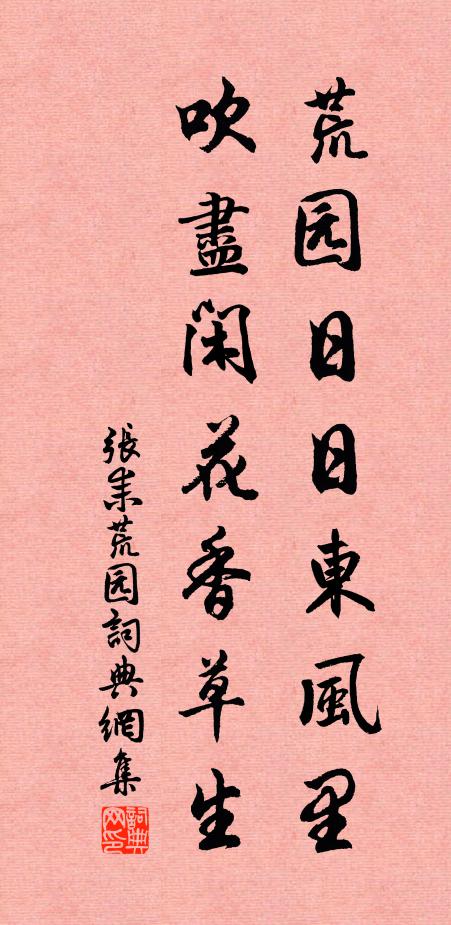 荒园日日東風里
吹盡閑花香草生
張耒荒园詞典網集
詞典网印